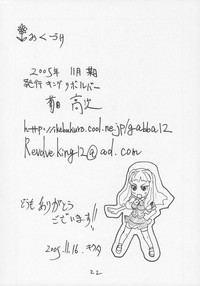 おくづけ
2005年 11月 期
発行 キングリボルバー
http://ikebukuro.cool.ne.jp/gabba12
Revolve King12@aol.com
どうも ありがとう
ございます!!
2005.11.16.
22